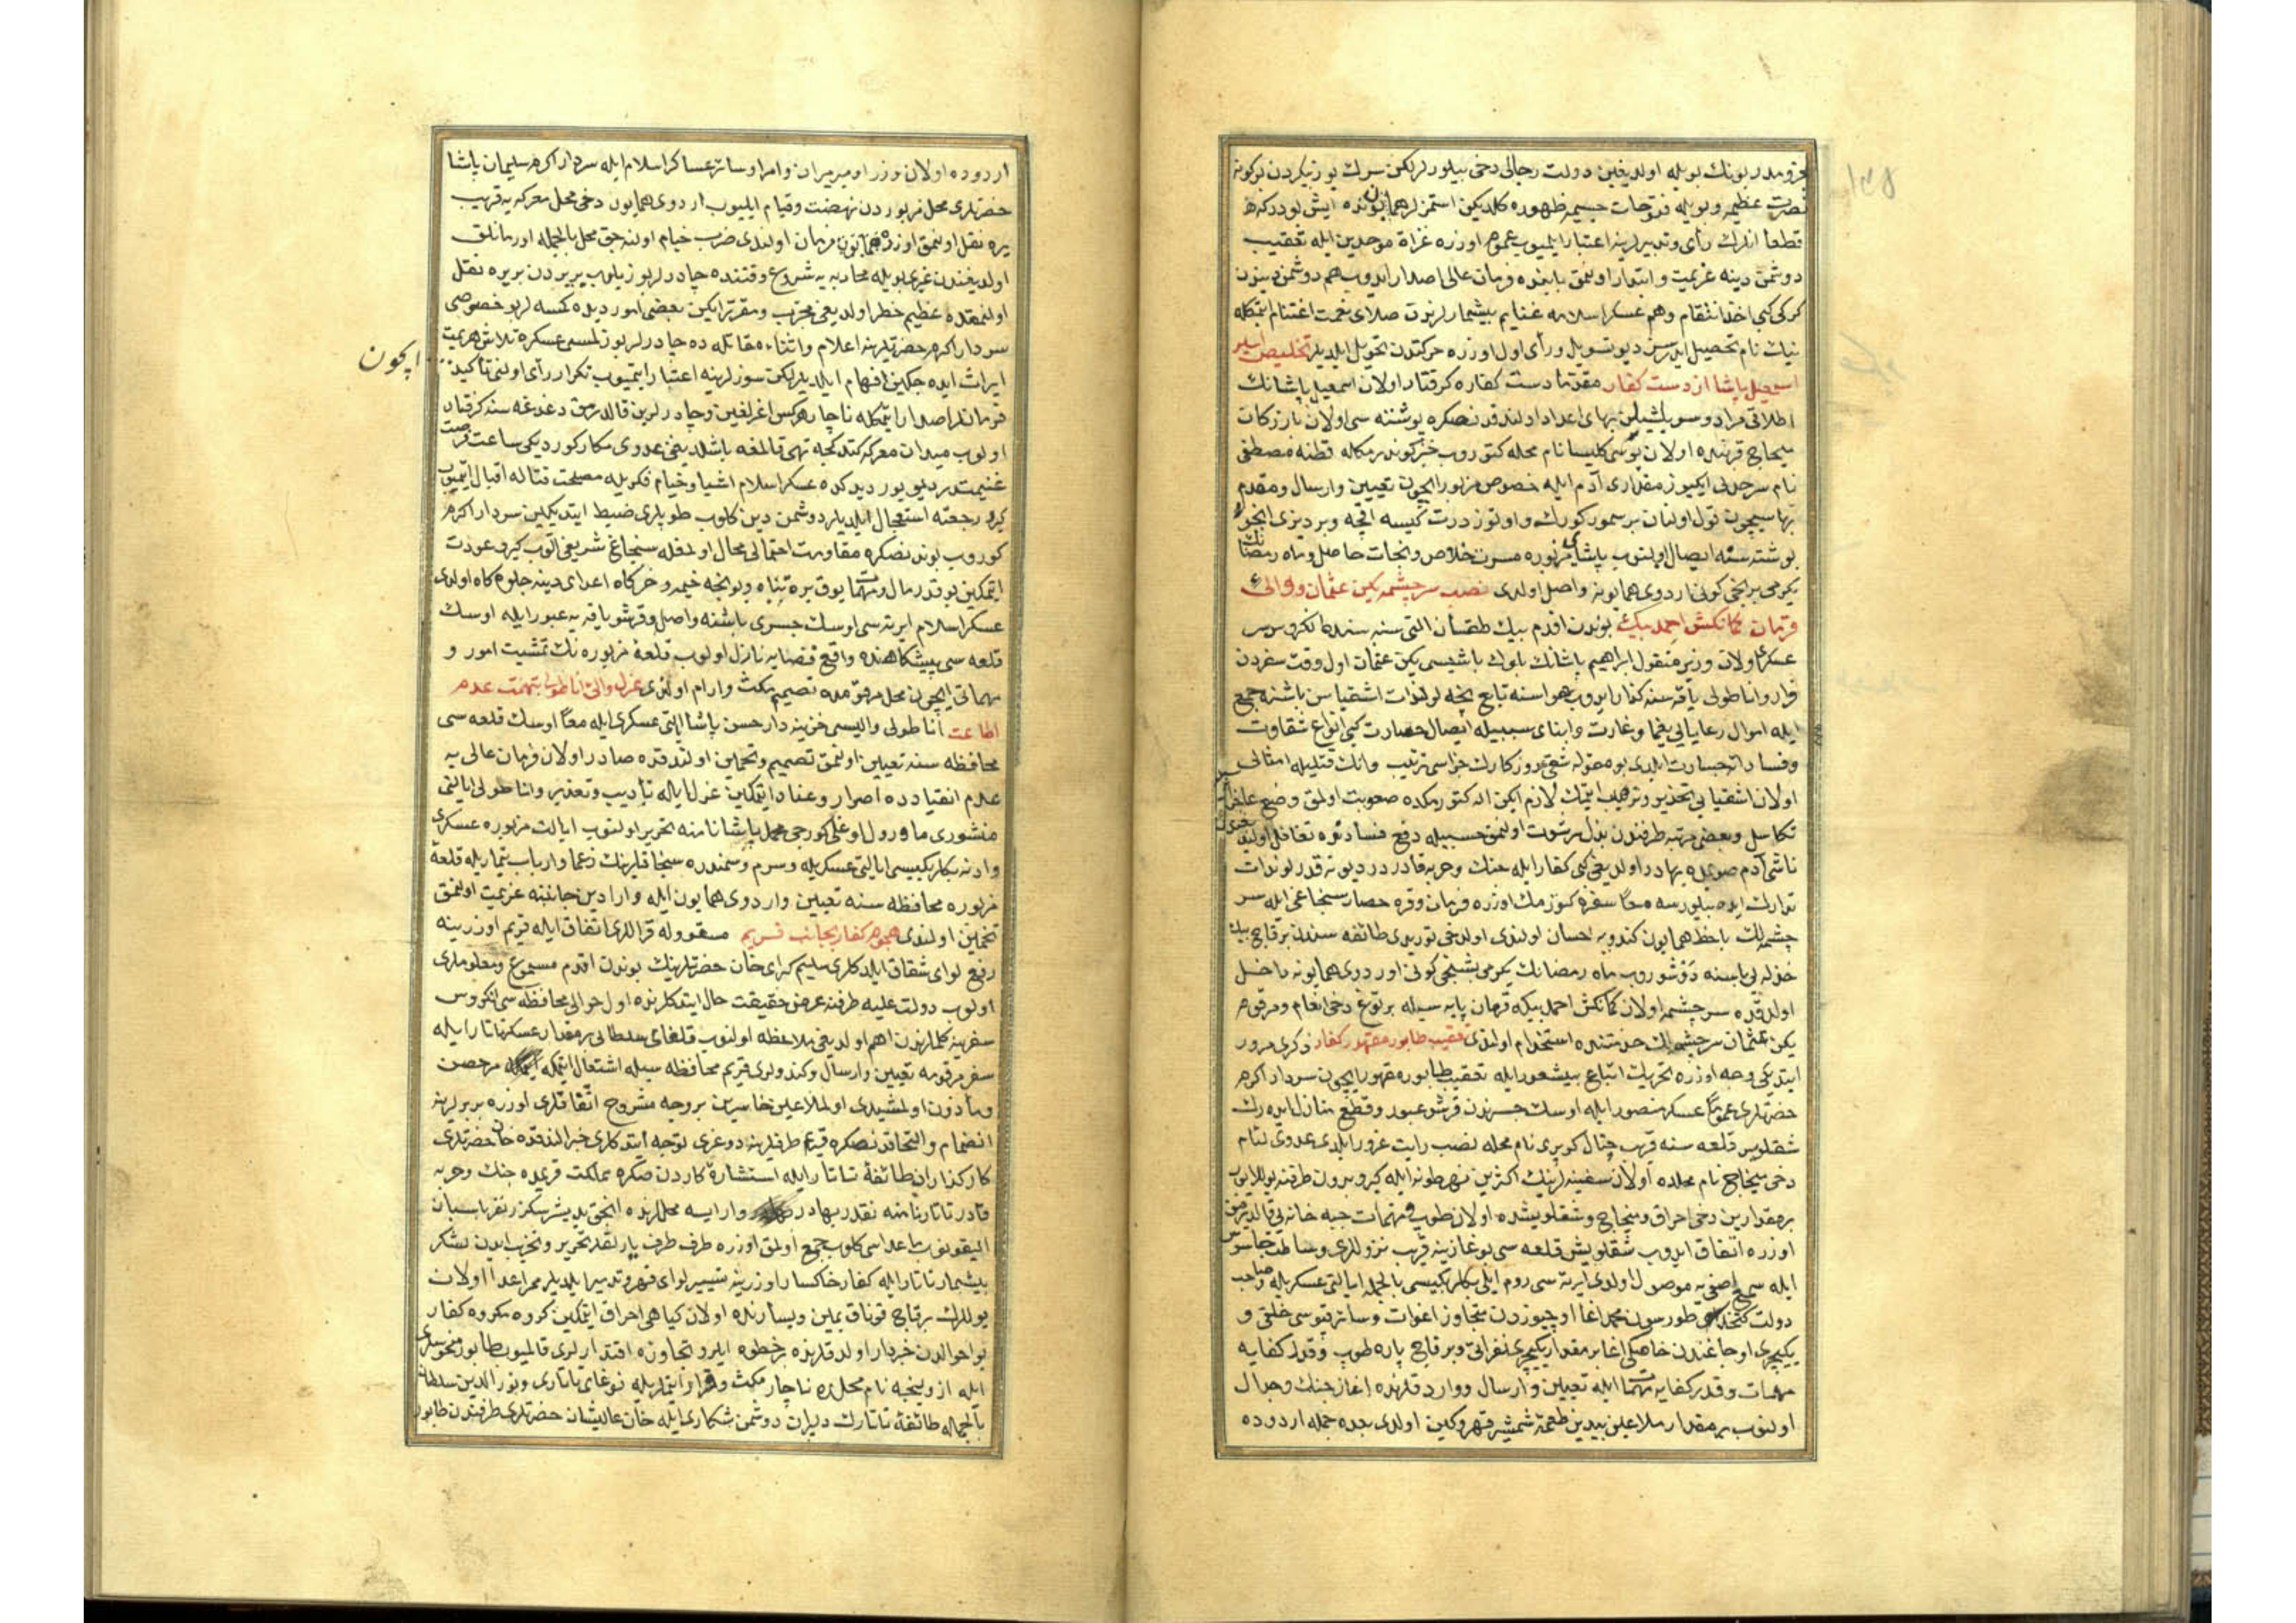 نصرت عظیمه و بویله فتوحات جسیمه ظهوره کلدیکن استمزلر هماندن بونده ایش بودر که
قطعا انلرك رأی و تدبیرلرینه اعتبار ایلمیوب عموم اوزره غزاة موحدین ایله تعقیب
دوشمن دینه عزیمت و ابتدار اولنمق بابنده فرمان عالی اصدار ایدوب هم دوشمن دیندن
کرکی کبی اخذ انتقام و هم عسکر اسلامه غنایم بیشمارلرندن صلای نعمت اغتنام ایتمکله
نیك نام تحصیل ایدرسن دیو تسویل و رأی اول اوزره حرکتدن تحویل ایلدیلر تخلیص اسیر
اسمعیل پاشا از دست کفار مقدما دست کفاره کرفتار اولان اسمعیل پاشانك
اطلاقی مراد و سربلشیلن بهای اعداد اولندقدنصکره بوشتنه سی اولان بازرکان
سیجاح قربنده اولان کلیسا نام محله کتوروب خبر کوندرمکله قطنه مصطفی
نام سرحدلی ایکیوز مقداری آدم ایله خصوص مزبور ایچون تعیین و ارسال و مقدم
بهاسیچون قول اولنان بر سمور کورك و اوتوز درت کیسه اقچه و بر دیزی انجو
بوشتنه سنه ایصال اولنوب پاشای مزبوره مسرت خلاص و نجات حاصل و ماه رمضانك
یکرمی برنجی کونی اردوی همایونه واصل اولدی نصب سرچشمه یکن عثمان و والی
قرمان کمانکش احمد بیك بوندن اقدم بیك طقسان التی سنه سنده انکروس
عسکری اولان وزیر متقول ابراهیم پاشانك بلوك باشیسی یکن عثمان اول وقت سفردن
فرار و اناطولی یاقه سنه کذار ایدوب هواسنه تابع نیچه لوندات اشقیاسن باشنه جمع
ایله اموال رعایایی یغما و غارت و ابنای سبیله ایصال خسارت کبی انواع شقاوت
و فساداته جسارت ایلدی بو مقوله شقی روزکارك جزاسی ترتیب و انك قتلیله امثالی
اولان اشقیایی تحذیر و ترهیب ایتمك لازم ایکن اله کتورمکده صعوبت اولمق وضع
تکاسل و بعضی مرتبه طرفندن بذل رشوت اولنمق حسبیله دفع فسادندن تغافل اولنوب
ناشی آدم صویله بهادر اولدیغی کبی کفار ایله جنك و حربه قادر در دیو نه قدر لوندات
تدارك ایده بیلورسه معا سفره کتورمك اوزره فرمان و قره حصار سنجاغی ایله سر
چشمه لك باخط همایون کندویه احسان اولندی اولدخی توریدی طائفه سندن برقاچ بیك
خذله یی یاسنه دوشوروب ماه رمضانك یکرمی بشنجی کونی اوردوی همایونه داخل
اولدقده سر چشمه اولان کمانکش احمد بیکه قرمان پایه سیله بر توغ دخی انعام و مرقوم
یکن عثمان سر چشمه لك خدمتنده استخدام اولندی تعقیب طابور مقهور کفار ذکری مرور
ایتدیکی وجه اوزره تحریك اتباع بیشعور ایله تعقیب طابوره مقهور ایچون سردار اکرم
حضرتلری عموما عسکر منصور ایله اوسك جسرندن قرشو عبور و قطع منازل ایده رك
شقلوس قلعه سنه قریب چتال کوپری نام محله نصب رایت غرور ایلدی عدوی لئام
دخی سیجاح نام محلده اولان سفینه لرینك اکثرین نهر طونه ایله کیرو بدون طرفنه یوللایوب
بر مقدارین دخی احراق و سیجاح و شقلویشده اولان طوب و مهمات جبه خانه یی قالدرمق
اوزره اتفاق ایدوب شقلویش قلعه سی بوغازینه قریب نزوللری وساطت جاسوس
ایله سمع اصفی یه موصول اولدی ایرته سی روم ایلی بکلربکیسی بالجمله ایالتی عسکریله و صاحب
دولت کتخداسی طورسون محمد اغا اوچیوزدن متجاوز اغوات و سائر قپوسی خلقی و
یکیچری اوجاغندن خاصکی اغا بر مقدار یکیچری نفراتی و برقاچ پاره طوب و قدر کفایه
مهمات و قدر کفایه مهمات ایله تعیین و ارسال و واردقلرنده اغاز جنك و جدال
اولنوب بر مقدار ملاعین بیدین طعمه شمشیر قهر و کین اولدی بعده جمله اردوده
اردوده اولان وزرا و میرمیران و امرا و سائر عساکر اسلام ایله سردار اکرم سلیمان پاشا
حضرتلری محل مزبوردن نهضت و قیام ایلیوب اردوی همایون دخی محل معرکه یه قریب
یره نقل اولنمق اوزره همایون فرمان اولندی ضرب خیام اولنه جق محل بالجمله اورمانلق
اولدیغندن غیری بویله محاربه یه شروع وقتنده چادرلر بوزیلوب بر یردن بر یره نقل
اولنمقده عظیم خطر اولدیغی مجرب و مقرر ایکن بعضی امور دیده کمسه لر بو خصوصی
سردار اکرم حضرتلرینه اعلام و اثناء مقاتله ده چادرلر بوزلمسی عسکره تلاش هزیمت
ایراث ایده جکین افهام ایلدیلر لکن سوزلرینه اعتبار ایتمیوب تکرار رأی اولنی تأکید
ایچون
فرمانلر اصدار ایتمکله ناچار هرکس اغرلغین و چادرلرین قالدرمق دغدغه سنه کرفتار
اولوب میدان معرکه کتدکجه تهی قالمغه باشلدیغی عدوی مکار کوردیکی ساعت فرصت
غنیمتدر دیو یورودیکده عسکر اسلام اشیا و خیام فکریله مصلحت قتاله اقبال ایتمیوب
کیرو رجعته استعجال ایلدیلر دوشمن دین کلوب طوپلری ضبط ایتدیکین سردار اکرم
کوروب بوندنصکره مقاومت احتمالی محال اولمغله سنجاغ شریفی الوب کیرو عودت
ایتمکین بو قدر مال و مهمات یوق یره تباه و بونجه خیمه و خرکاه اعدای دینه جلوه کاه اولدی
عسکر اسلام ایرته سی اوسك جسری باشنه واصل و قرشو یاقه یه عبور ایله اوسك
قلعه سی پیشکاهنده واقع فضایه نازل اولوب قلعه مزبوره نك تمشیت امور و
مهماتی ایچون محل مرقومده تصمیم مکث و ارام اولندی عزل والی اناطولی بتهمت عدم
اطاعت اناطولی والیسی خزینه دار حسن پاشا ایالتی عسکری ایله معا اوسك قلعه سی
محافظه سنه تعیین اولنمق تصمیم و تخمین اولندقده صادر اولان فرمان عالی یه
عدم انقیادده اصرار و عناد ایتمکین عزل ایله تأدیب و تعذیر و اناطولی ایالتی
منشوری ماورول اوغلی کورجی محمد پاشا نامنه تحریر اولنوب ایالت مزبوره عسکری
و ادنه بکلربکیسی ایالتی عسکریله و سرم و سمندره سنجاقلرینك زعما و ارباب تیماریله قلعه
مزبوره محافظه سنه تعیین و اردوی همایون ایله وارادین جانبنه عزیمت اولنمق
تخمین اولندی هجوم کفار بجانب قریم مسقو و له قراللری اتفاق ایله قریم اوزرینه
رفع لوای شقاق ایلدکلری سلیم کرای خان حضرتلرینك بوندن اقدم مسموع و معلوملری
اولوب دولت علیه طرفنه عرض حقیقت حال ایتدکلرنده اول حوالی محافظه سی انکروس
سفرینه کلملرندن اهم اولدیغی ملاحظه اولنوب قلغای سلطانی بر مقدار عسکر تاتار ایله
سفر مرقومه تعیین و ارسال و کندولری قریم محافظه سیله اشتغال ایتمکله مرخص
و مأذون اولمشیدی اولملاعین خاسرین بر وجه مشروح اتفاقلری اوزره بربرلرینه
انضمام و التحاقدنصکره قریم طرفلرینه دوغری توجه ایتدکلری خبر النقده خان حضرتلری
کارکذاران طائفه تاتار ایله استشاره کاردن صکره مملکت قریمده جنك و حربه
قادر تاتار نامنه نقدر بهادر وار ایسه محللرنده انجق یدیشر سکزر نفر پاسبان
الیقونوب ماعداسی کلوب جمع اولمق اوزره طرف طرف یارلقلر تحریر و تحزب ایدن لشکر
بیشمار تاتار ایله کفار خاکسار اوزرینه تسییر لوای قهر و تدمیر ایلدیلر ممر اعدا اولان
یوللرك برقاچ قوناق یمین و یسارنده اولان کیاهی احراق ایتمکین کروه مکروه کفار
بو احوالدن خبردار اولدقلرنده بر خطوه ایلرو تجاوزه اقتدارلری قالمیوب طابور منحوسلری
ایله نام محلده ناچار مکث و قرار ایتدیلر بو یله نوغای تاتاری و نور الدین سلطان
بالجمله طائفه تاتارك دلیران دوشمن شکاری ایله خان عالیشان حضرتلری طرفندن طابور